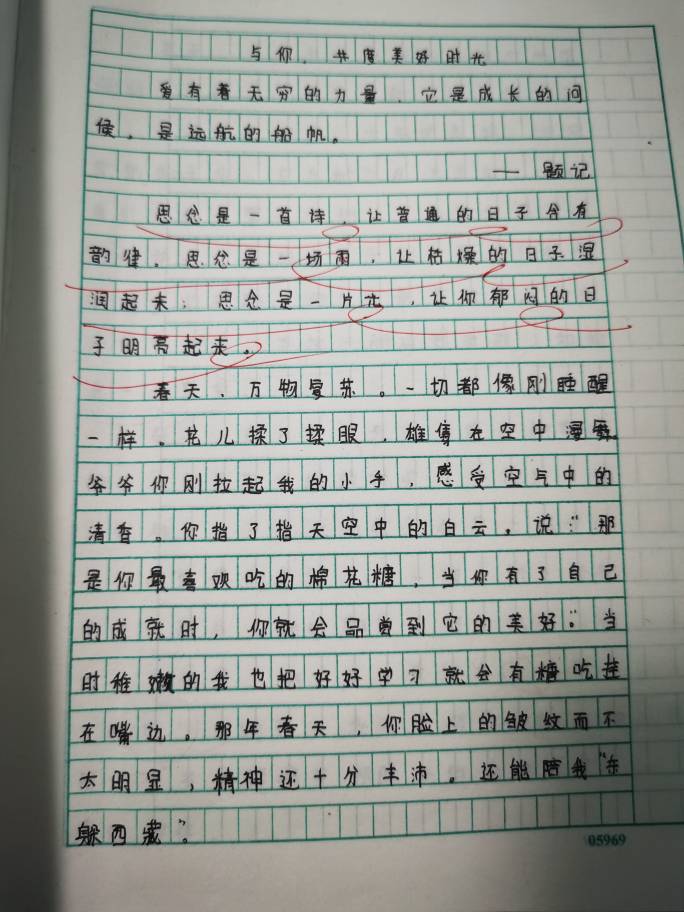 与你，共度美好时光
爱有着无穷的力量，它是成长的问
候，是远航的船帆。
—— 题记
思念是一首诗，让普通的日子含有
韵律。思念是一场雨，让枯燥的日子湿
润起来；思念是一片光，让你郁闷的日
子明亮起来。
春天，万物复苏。一切都像刚睡醒
一样。花儿揉了揉眼，在空中漫舞。
爷爷你刚拉起我的小手，感受空气中的
清香。你指了指天空中的白云，说："那
是你最喜欢吃的棉花糖，当你有了自己
的成就时，你就会品尝到它的美好。"当
时稚嫩的我也把好好学习就会有糖吃挂
在嘴边。那年春天，你脸上的皱纹而不
太明显，精神还十分丰沛。还能陪我"东
躲西藏"。
05969